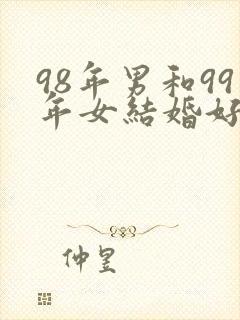 98年男和99
年女結婚好
仲昱